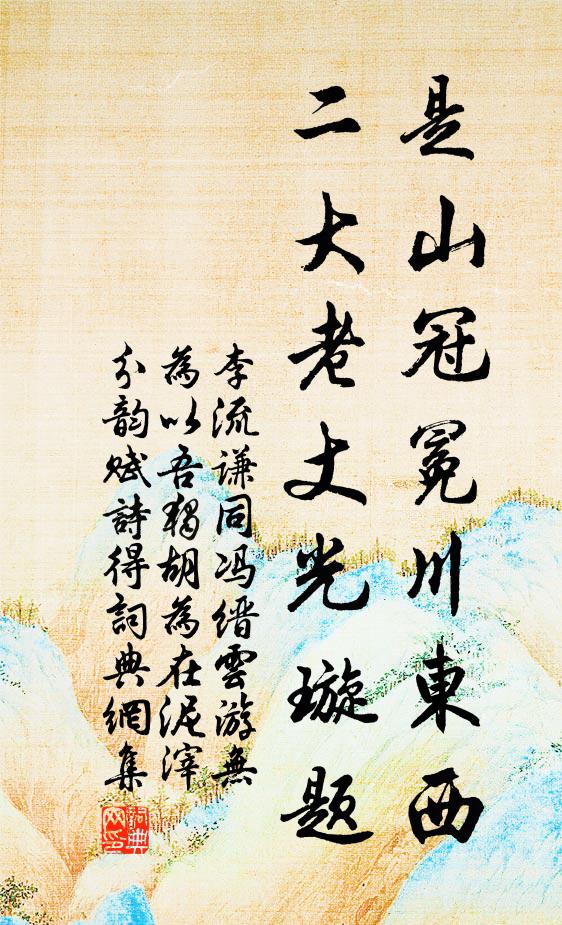 是山冠冕川東西
二大老丈光璇题
李流谦同冯縉雲游無
為以吾獨胡為在泥滓
分韵赋詩得詞典網集
詞典
网印